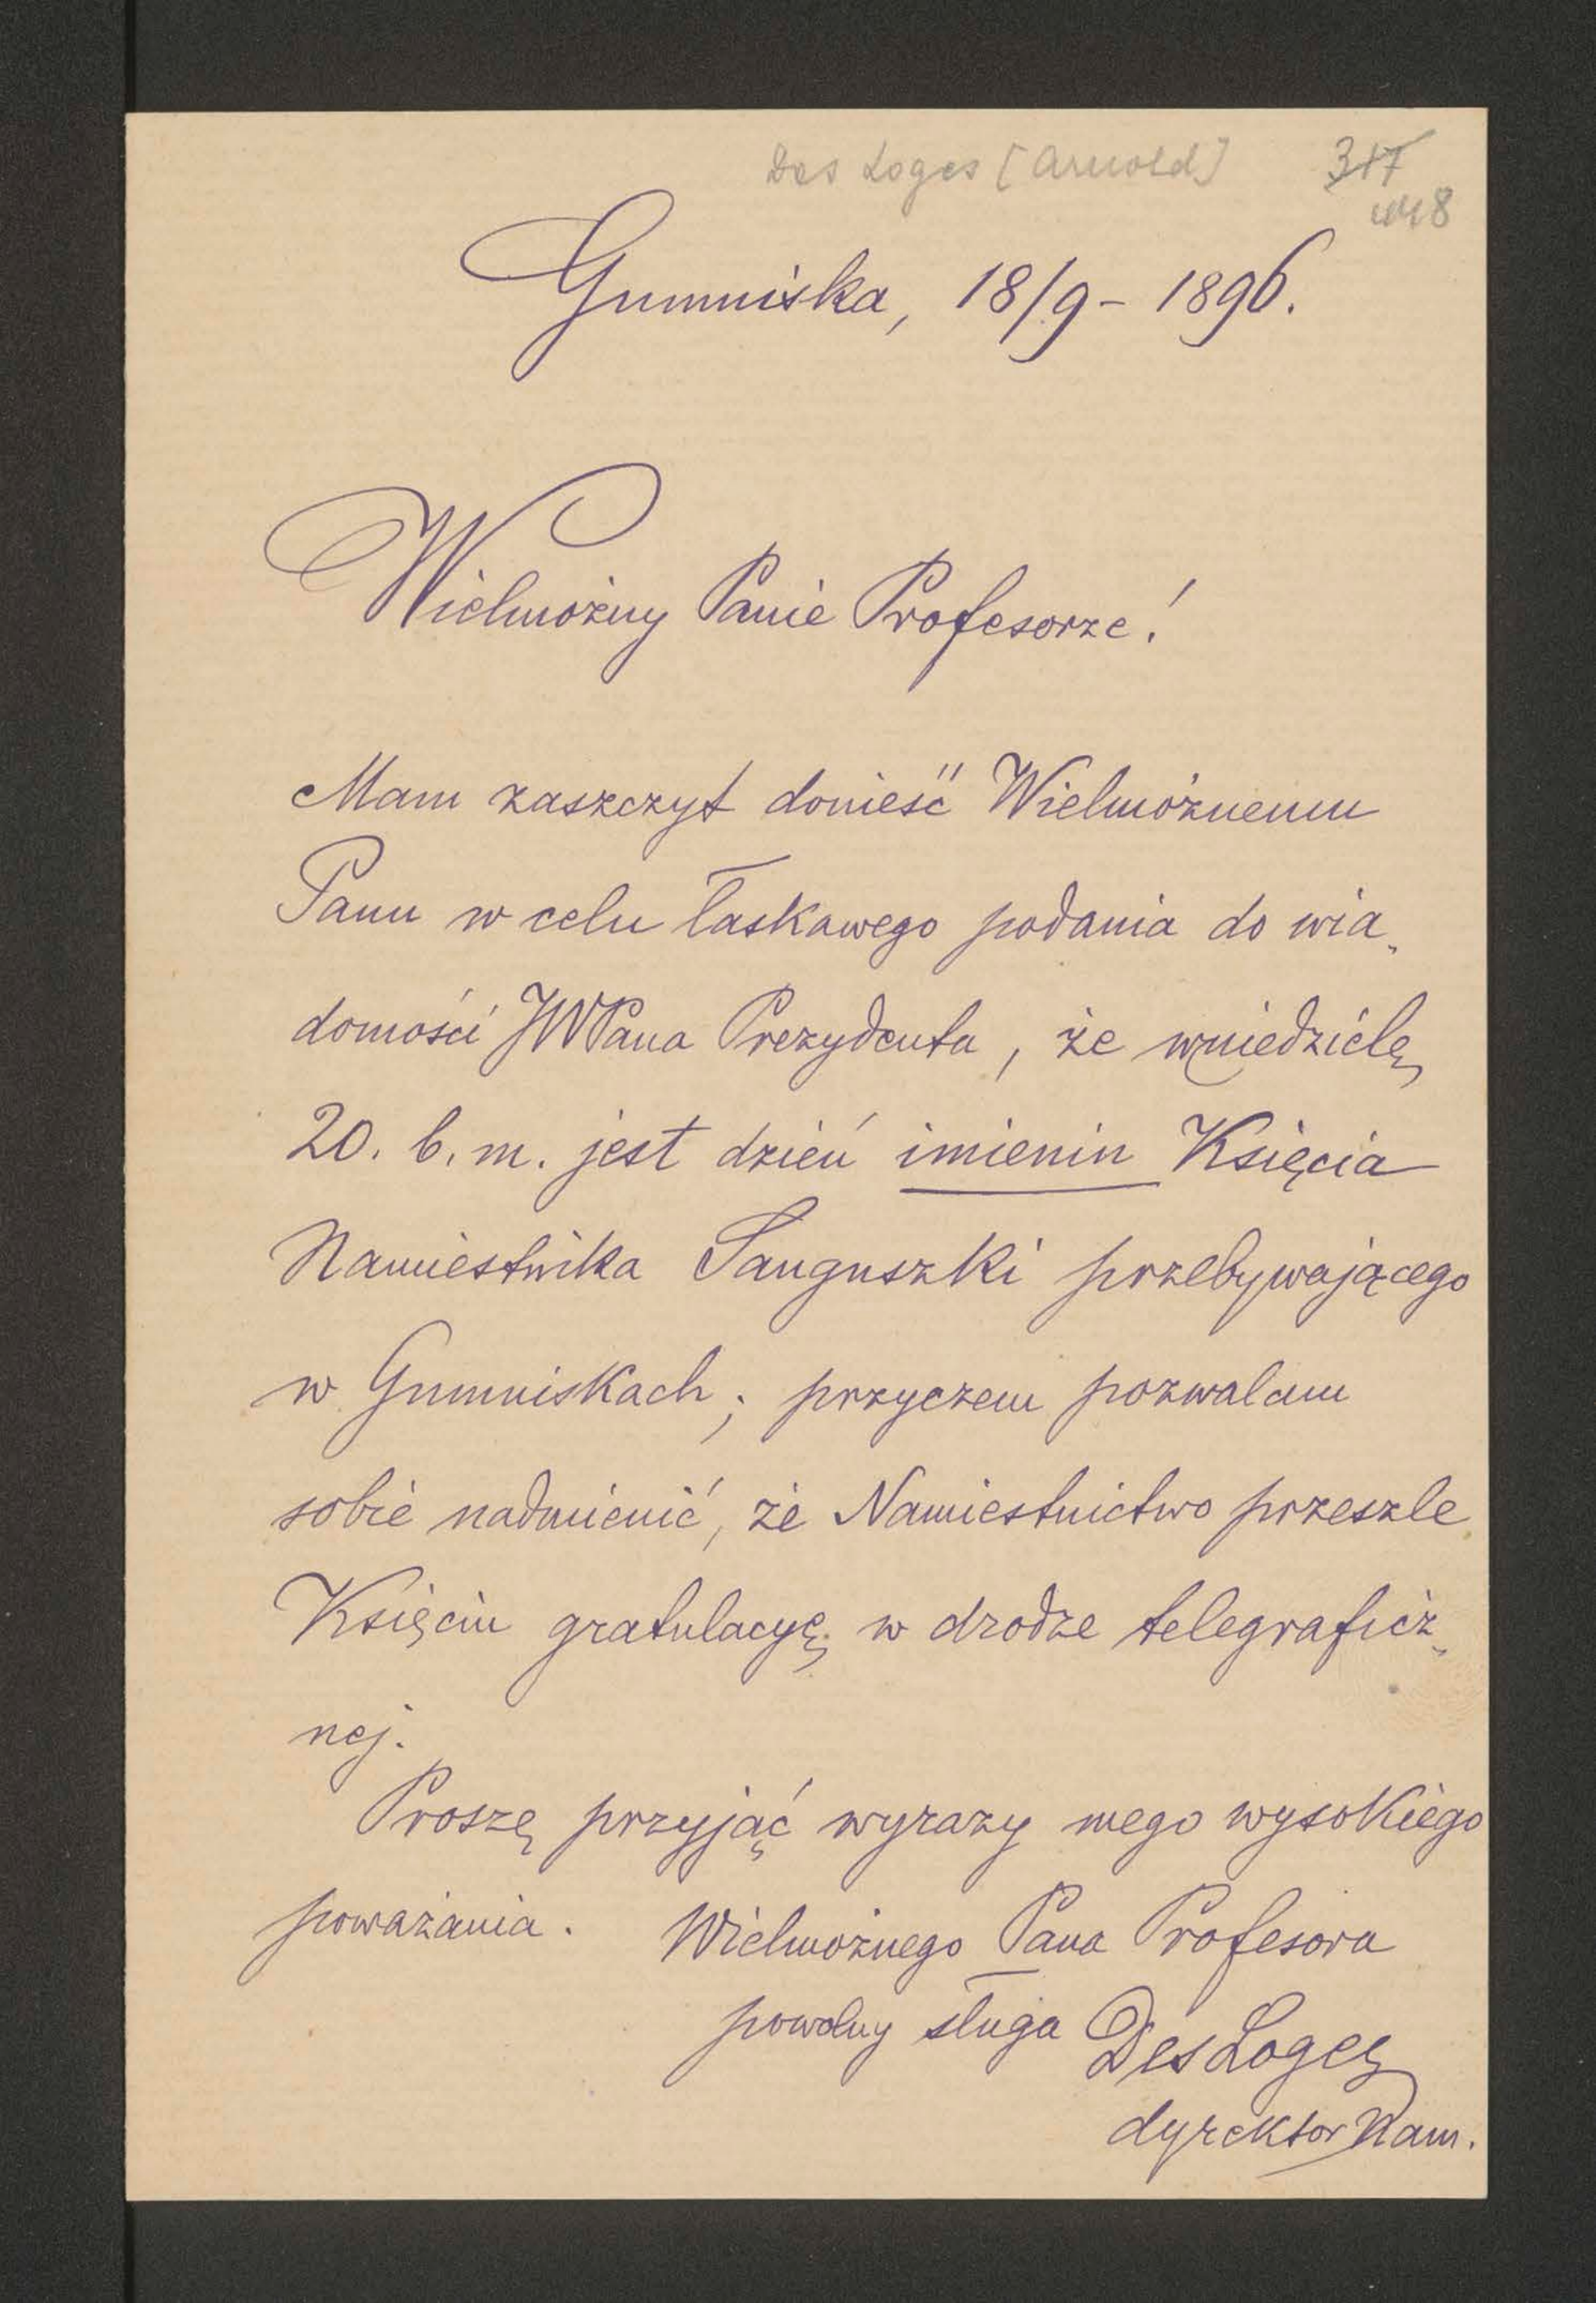 Des Loges [Arnold] 317
Gumniska, 18/9 - 1896.
Wielmożny Panie Profesorze!
Mam zaszczyt donieść Wielmożnemu
Panu w celu łaskawego podania do wia„
domości JWPana Prezydenta, że w niedzielę
20. b. m. jest dzień imienin Księcia
Namiestnika Sanguszki przebywającego
w Gumniskach; przyczem pozwalam
sobie nadmienić, że Namiestnictwo prześzle
Księciu gratulacyę w drodze telegraficz„
nej.
Proszę przyjąć wyrazy mego wysokiego
poważania. Wielmożnego Pana Profesora
powolny sługa Des Loges
dyrektor Nam.